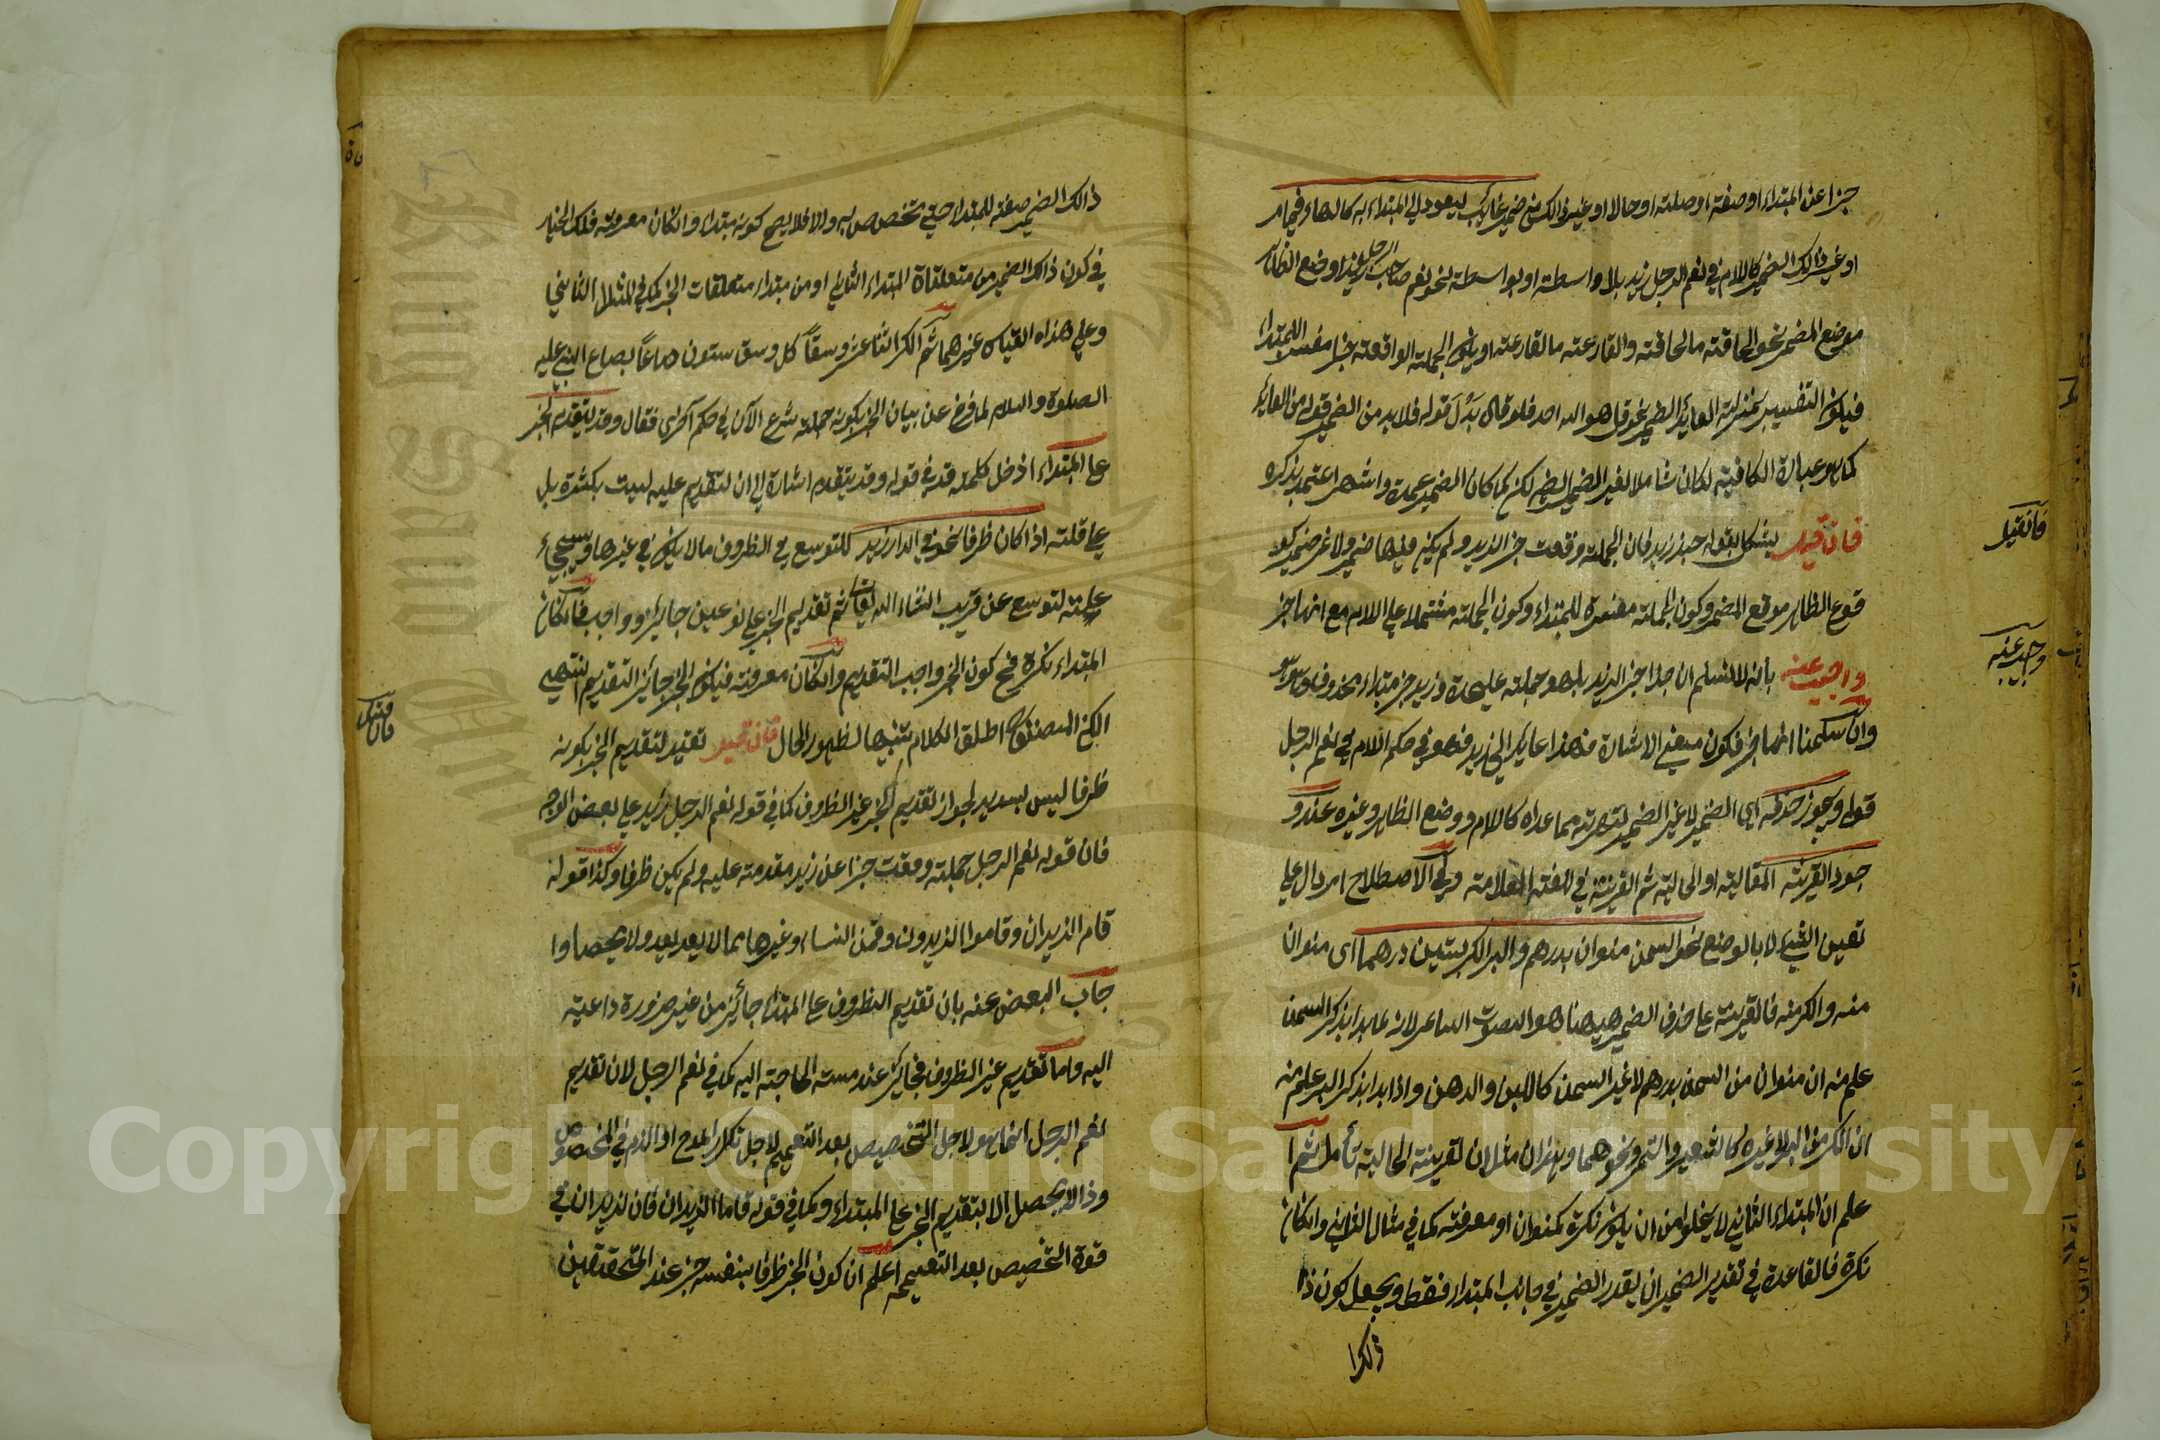 جزا عن المبتداء او صفته او صلته او حالا او غير ذالك من ضمير غائب ليعود الى المبتداء به كالهاء فيما مر
او غير ذالك الضمير كاللام في نعم الرجل زيد بلا واسطة او بواسطة نحو نعم صاحب الرجل زيد او وضع الظاهر
موضع المضمر نحو الحاقة ما الحاقة والقارعة ما القارعة او يكون الجملة الواقعة خبرا مفسرا للمبتداء
فيكون التفسير بمنزلة العايد الضمير نحو قل هو الله احد فلو قال بدل قوله فلا بد من الضمير قوله من العايد
كما هو عبارة الكافية لكان شاملا لغير الضمير لكن لما كان الضمير عمدة واشهر اعتمد بذكره
فان قيل يشكل بقوله حبذا زيد فان الجملة وقعت خبرا لزيد ولم يكن فيها ضمير ولا غير ضمير كو
قوع الظاهر موقع المضمر وكون الجملة مفسرة للمبتداء وكون الجملة مشتملا على اللام مع انها خبر
واجيب عنه بانه لا نسلم ان حبذا خبر الزيد بل هو جملة عليحدة وزيد خبر مبتداء محذوف اي هو
وان سلمنا انها خبر فكون معنى الاشارة فى هذا عايد الى زيد فهو في حكم اللام في نعم الرجل
قوله ويجوز حذفه اي الضمير لا غير الضمير لشهرته مما عداه كاللام ووضع الظاهر وغيره عند و
جود القرينة المقالية او الحالية ثم القرينة في اللغة العلامة وفي الاصطلاح امر دال على
تعين الشيء لا بالوضع نحو السمن منوان بدرهم والبر الكر بستين درهما اى منوان
منه والكر منه فالقرينة على حذف الضمير ههنا هو
علم منه ان منوان من السمن بدرهم لا غير السمن كاللبن والدهن واذا بدا بذكر البر علم منه
ان الكر من البر لا غيره كالشعير والتمر ونحوهما وهذان مثالان لقرينة الحالية تأمل ثم ا
علم ان المبتداء الثاني لا يخلو من ان يكون نكرة كمنوان او معرفة كما في مثال الثاني وان كان
نكرة فالقاعدة في تقدير الضمير ان يقدر الضمير في جانب المبتداء فقط ويجعل كون ذا
ذلك ا
فان قيل
واجيب عنه
ذالك الضمير صفة للمبتداء حتى تخصص به والا فلا يصح كونه مبتداء وان كان معرفة فلك الخيار
في كون ذالك الضمير من متعلقاة المبتداء الثاني او من مبتداء متعلقات الخبر كما في المثال الثاني
وعلى هذا القياس غيرهما ثم الكر اثنا عشر وسقاً كل وسق ستون صاعاً بصاع النبي عليه
الصلوة والسلام لما فرغ عن بيان الخبر بكونه جملة شرع الآن في حكم آخر فقال وقد يتقدم الخبر
على المبتداء ادخل كلمة قد في قوله وقد يتقدم اشارة الى ان تقديم عليه ليست بكثرة بل
على قلة اذا كان ظرفا نحو في الدار زيد للتوسع في الظروف ما لا يكون في غيرها وسيجيء
علية لتوسع عن قريب انشاء الله تعالى ثم تقديم الخبر على نوعين جايز وواجب فان كان
المبتداء نكرة فح كون الخبر واجب التقديم وان كان معرفة فيكون الخبر جائز التقديم انتهى
لكن المصنف اطلق الكلام تنبيها لظهور الحال فان قيل تقييد تقديم الخبر بكونه
ظرفا ليس بسديد لجواز تقديم الخبر غير الظروف كما في قوله نعم الرجل زيد على بعض الوجه
فان قوله نعم الرجل جملة وقعت خبرا عن زيد مقدمة عليه ولم يكن ظرفا وكذا قوله
قام الزيدان وقاموا الزيدون وقمن النساء وغيرها مما لا يعد بعد ولا يحصا وا
جاب البعض عنه بان تقديم الظروف على المبتداء جائز من غير ضرورة داعية
اليه واما تقديم غير الظروف فجائز عند مسة الحاجة اليه كما في نعم الرجل لان تقديم
نعم الرجل انما هو لاجل التخصيص بعد التعميم لاجل تكرار المدح او الذم في المخصوص
وذا لا يحصل الا بتقديم الخبر على المبتداء وكما في قوله قاما الزيدان فان لزيدان في
قوة التخصيص بعد التعميم اعلم ان كون الخبر ظرفا بنفسه خبر عند المتحققين
فان قيل
Copyright © King Saud University
King Saud University
1957